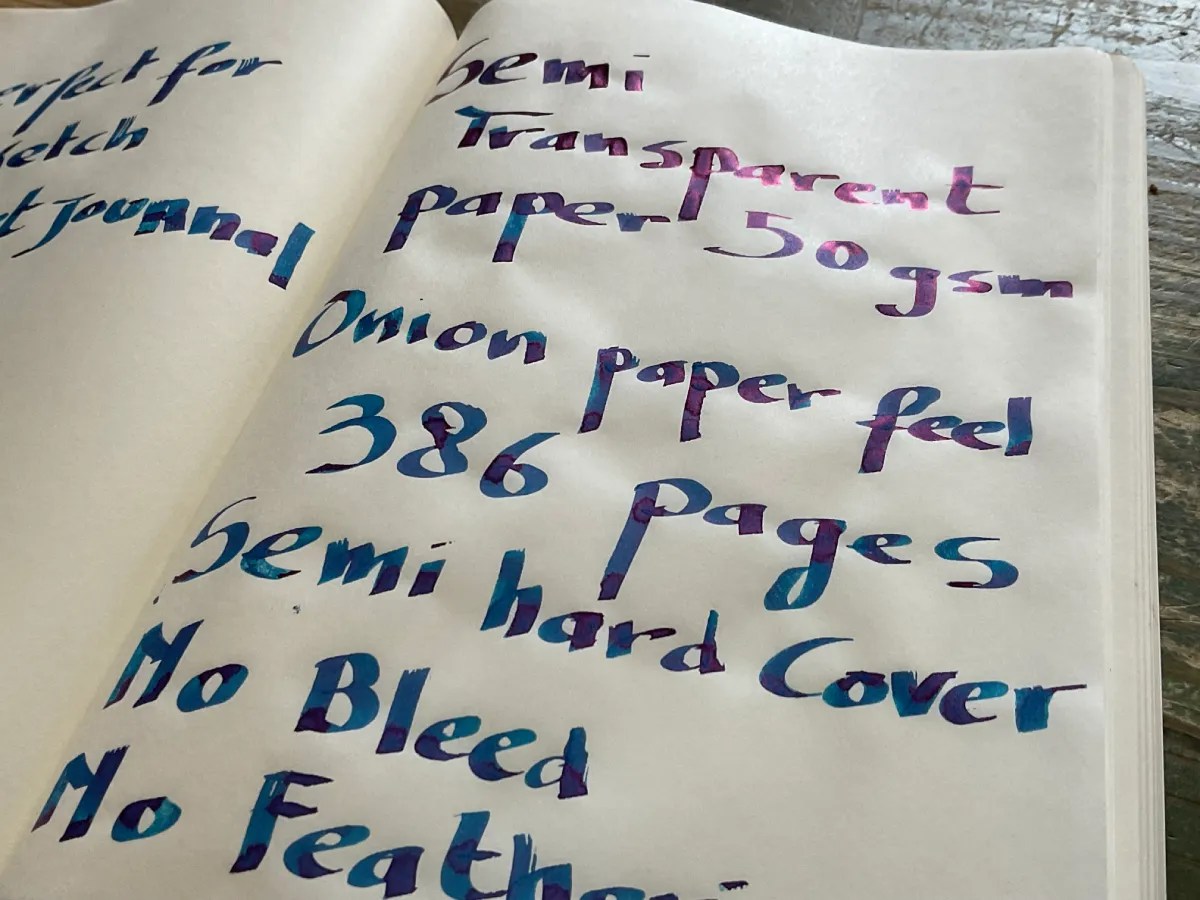 erfect for
ketch
t Journal
Semi
Transparent
paper 50 gsm
Onion paper feel
386 Pages
Semi hard Cover
No Bleed
No Featheri